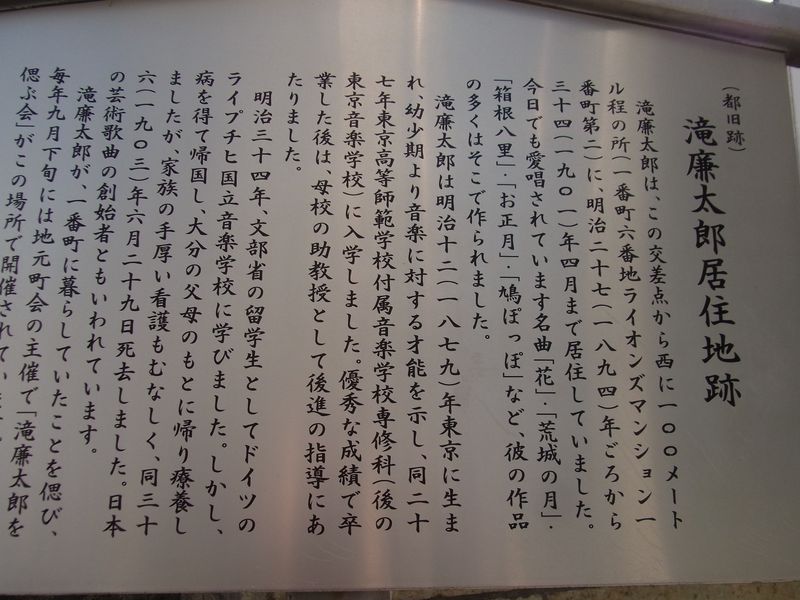 （都旧跡）
滝廉太郎居住地跡
滝廉太郎は、この交差点から西に一〇〇メート
ル程の所（一番町六番地ライオンズマンション一
番町第二）に、明治二十七（一八九四）年ごろから
三十四（一九〇一）年四月まで居住していました。
今日でも愛唱されています名曲「花」・「荒城の月」・
「箱根八里」・「お正月」・「鳩ぽっぽ」など、彼の作品
の多くはそこで作られました。
滝廉太郎は明治十二（一八七九）年東京に生ま
れ、幼少期より音楽に対する才能を示し、同二十
七年東京高等師範学校付属音楽学校専修科（後の
東京音楽学校）に入学しました。優秀な成績で卒
業した後は、母校の助教授として後進の指導にあ
たりました。
明治三十四年、文部省の留学生としてドイツの
ライプチヒ国立音楽学校に学びました。しかし、
病を得て帰国し、大分の父母のもとに帰り療養し
ましたが、家族の手厚い看護もむなしく、同三十
六（一九〇三）年六月二十九日死去しました。日本
の芸術歌曲の創始者ともいわれています。
滝廉太郎が、一番町に暮らしていたことを偲び、
毎年九月下旬には地元町会の主催で「滝廉太郎を
偲ぶ会」がこの場所で開催されてい